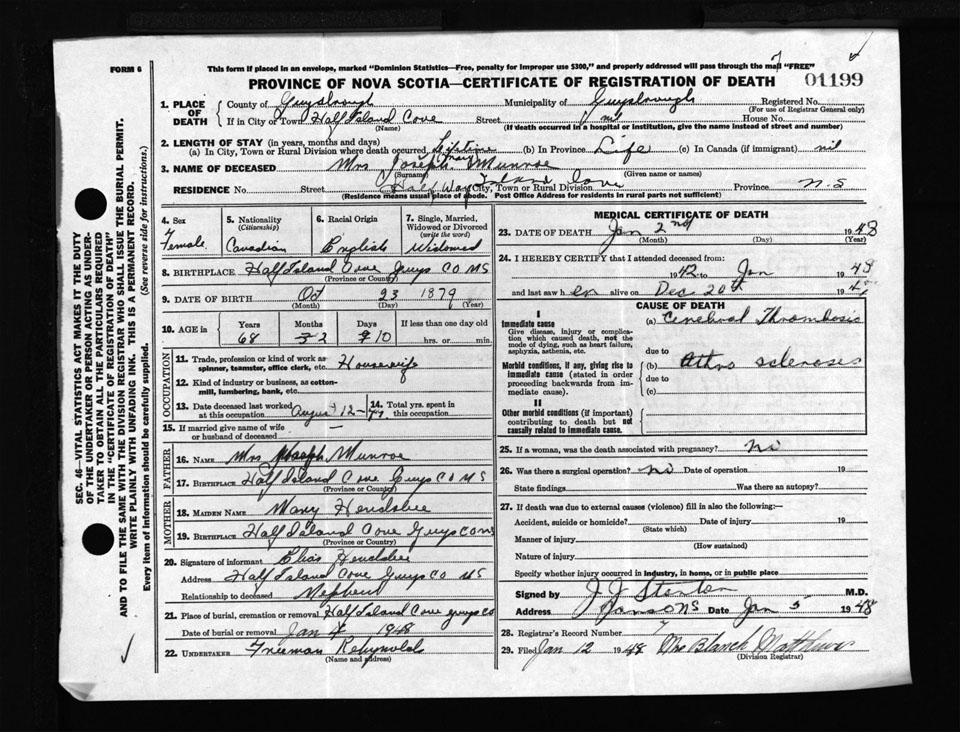 FORM 6
This form if placed in an envelope, marked "Dominion Statistics—Free, penalty for improper use $300," and properly addressed will pass through the mail "FREE"
7
PROVINCE OF NOVA SCOTIA—CERTIFICATE OF REGISTRATION OF DEATH
01199
1. PLACE OF DEATH
County of Guysborough Municipality of Guysborough Registered No.
(For use of Registrar General only)
If in City or Town Half Island Cove Street nil House No.
(Name) (If death occurred in a hospital or institution, give the name instead of street and number)
2. LENGTH OF STAY (in years, months and days)
(a) In City, Town or Rural Division where death occurred Lifetime (b) In Province Life (c) In Canada (if immigrant) nil
3. NAME OF DECEASED Mrs Joseph Mary Munroe
(Surname) (Given name or names)
RESIDENCE No. Street Half Way Island Cove City, Town or Rural Division Province N.S
(Residence means usual place of abode. Post Office Address for residents in rural parts not sufficient)
4. Sex
Female
5. Nationality
(Citizenship)
Canadian
6. Racial Origin
English
7. Single, Married, Widowed or Divorced
(write the word)
Widowed
8. BIRTHPLACE Half Island Cove Guys Co NS
(Province or Country)
9. DATE OF BIRTH Oct 23 1879
(Month) (Day) (Year)
10. AGE in Years Months Days If less than one day old
68 2 10 hrs. or min.
OCCUPATION
11. Trade, profession or kind of work as spinner, teamster, office clerk, etc. Housewife
12. Kind of industry or business, as cotton-mill, lumbering, bank, etc.
13. Date deceased last worked at this occupation August 12-47
14. Total yrs. spent in this occupation
15. If married give name of wife or husband of deceased —
FATHER
16. NAME Mrs Joseph Munroe
17. BIRTHPLACE Half Island Cove Guys Co NS
(Province or Country)
MOTHER
18. MAIDEN NAME Mary Hendsbee
19. BIRTHPLACE Half Island Cove Guys Co NS
(Province or Country)
20. Signature of informant Elias Hendsbee
Address Half Island Cove Guys Co NS
Relationship to deceased Nephew
21. Place of burial, cremation or removal Half Island Cove Guys Co
Date of burial or removal Jan 4 1948
22. UNDERTAKER Freeman Rehynolds
(Name and address)
MEDICAL CERTIFICATE OF DEATH
23. DATE OF DEATH Jan 2nd 1948
(Month) (Day) (Year)
24. I HEREBY CERTIFY that I attended deceased from:
1942 to Jan 1948
and last saw her alive on Dec 20th 1947
CAUSE OF DEATH
I
Immediate cause
Give disease, injury or complication which caused death, not the mode of dying, such as heart failure, asphyxia, asthenia, etc.
(a) Cerebral Thrombosis
due to
Morbid conditions, if any, giving rise to immediate cause (stated in order proceeding backwards from immediate cause).
(b) Athro sclerosis
due to
(c)
II
Other morbid conditions (if important) contributing to death but not causally related to immediate cause.
25. If a woman, was the death associated with pregnancy? no
26. Was there a surgical operation? no Date of operation 19
State findings Was there an autopsy?
27. If death was due to external causes (violence) fill in also the following:—
Accident, suicide or homicide? Date of injury 19
(State which)
Manner of injury
(How sustained)
Nature of injury
Specify whether injury occurred in industry, in home, or in public place
Signed by J J Stanton M.D.
Address Cansons Date Jan 5 1948
28. Registrar's Record Number 7
29. Filed Jan 12 1948 Mrs Blanch Matthews
(Division Registrar)
SEC. 46—VITAL STATISTICS ACT MAKES IT THE DUTY
OF THE UNDERTAKER OR PERSON ACTING AS UNDER-
TAKER TO OBTAIN ALL THE PARTICULARS REQUIRED
IN THE "CERTIFICATE OF REGISTRATION OF DEATH"
AND TO FILE THE SAME WITH THE DIVISION REGISTRAR WHO SHALL ISSUE THE BURIAL PERMIT.
WRITE PLAINLY WITH UNFADING INK. THIS IS A PERMANENT RECORD.
Every item of information should be carefully supplied. (See reverse side for instructions.)